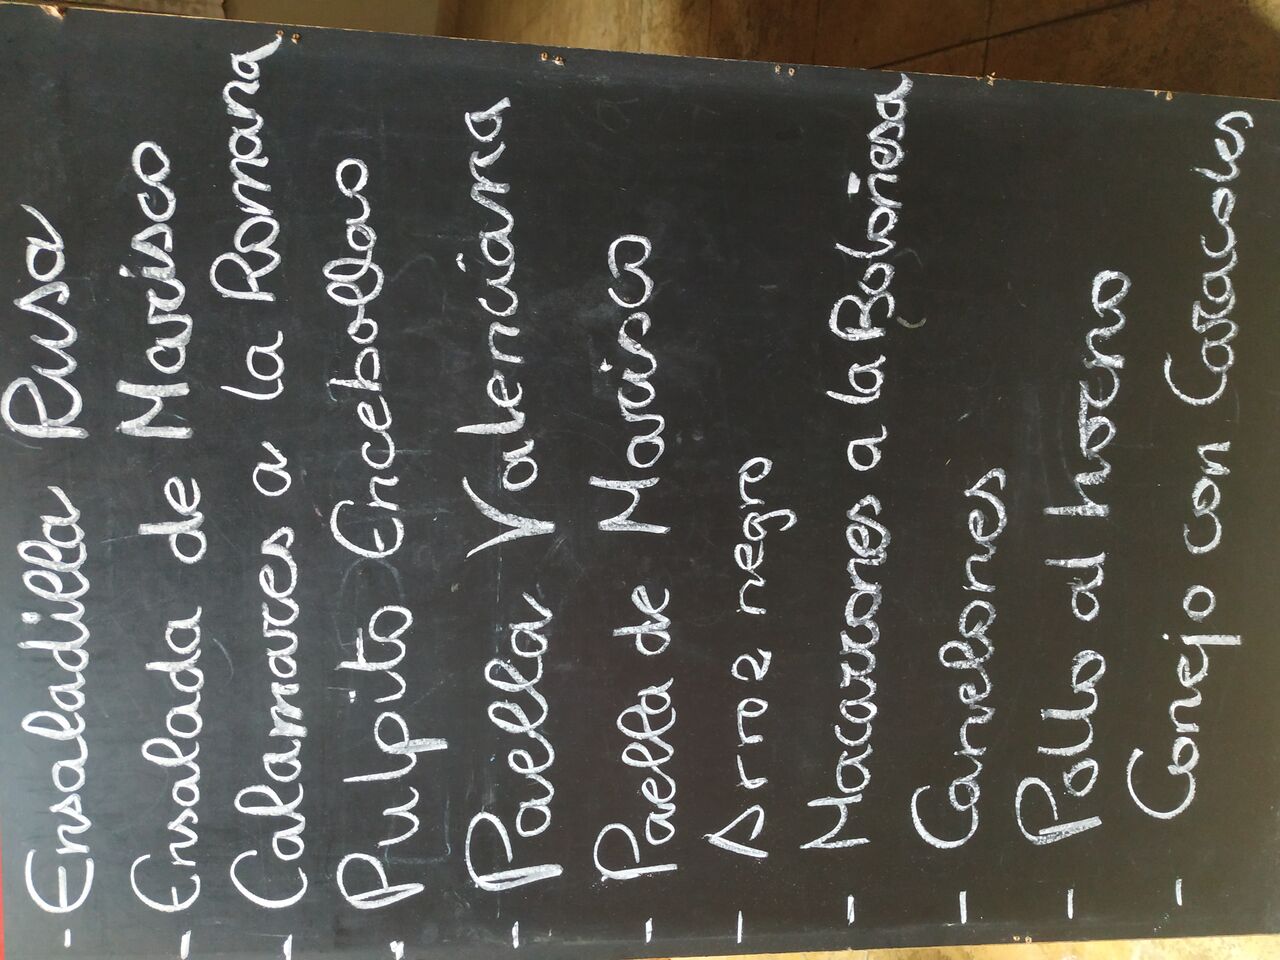 - Ensaladilla Rusa
- Ensalada de Marisco
- Calamares a la Romana
- Pulpito Encebollao
- Paella Valenciana
- Paella de Marisco
- Arroz negro
- Macarrones a la Boloñesa
- Canelones
- Pollo al horno
- Conejo con Caracoles